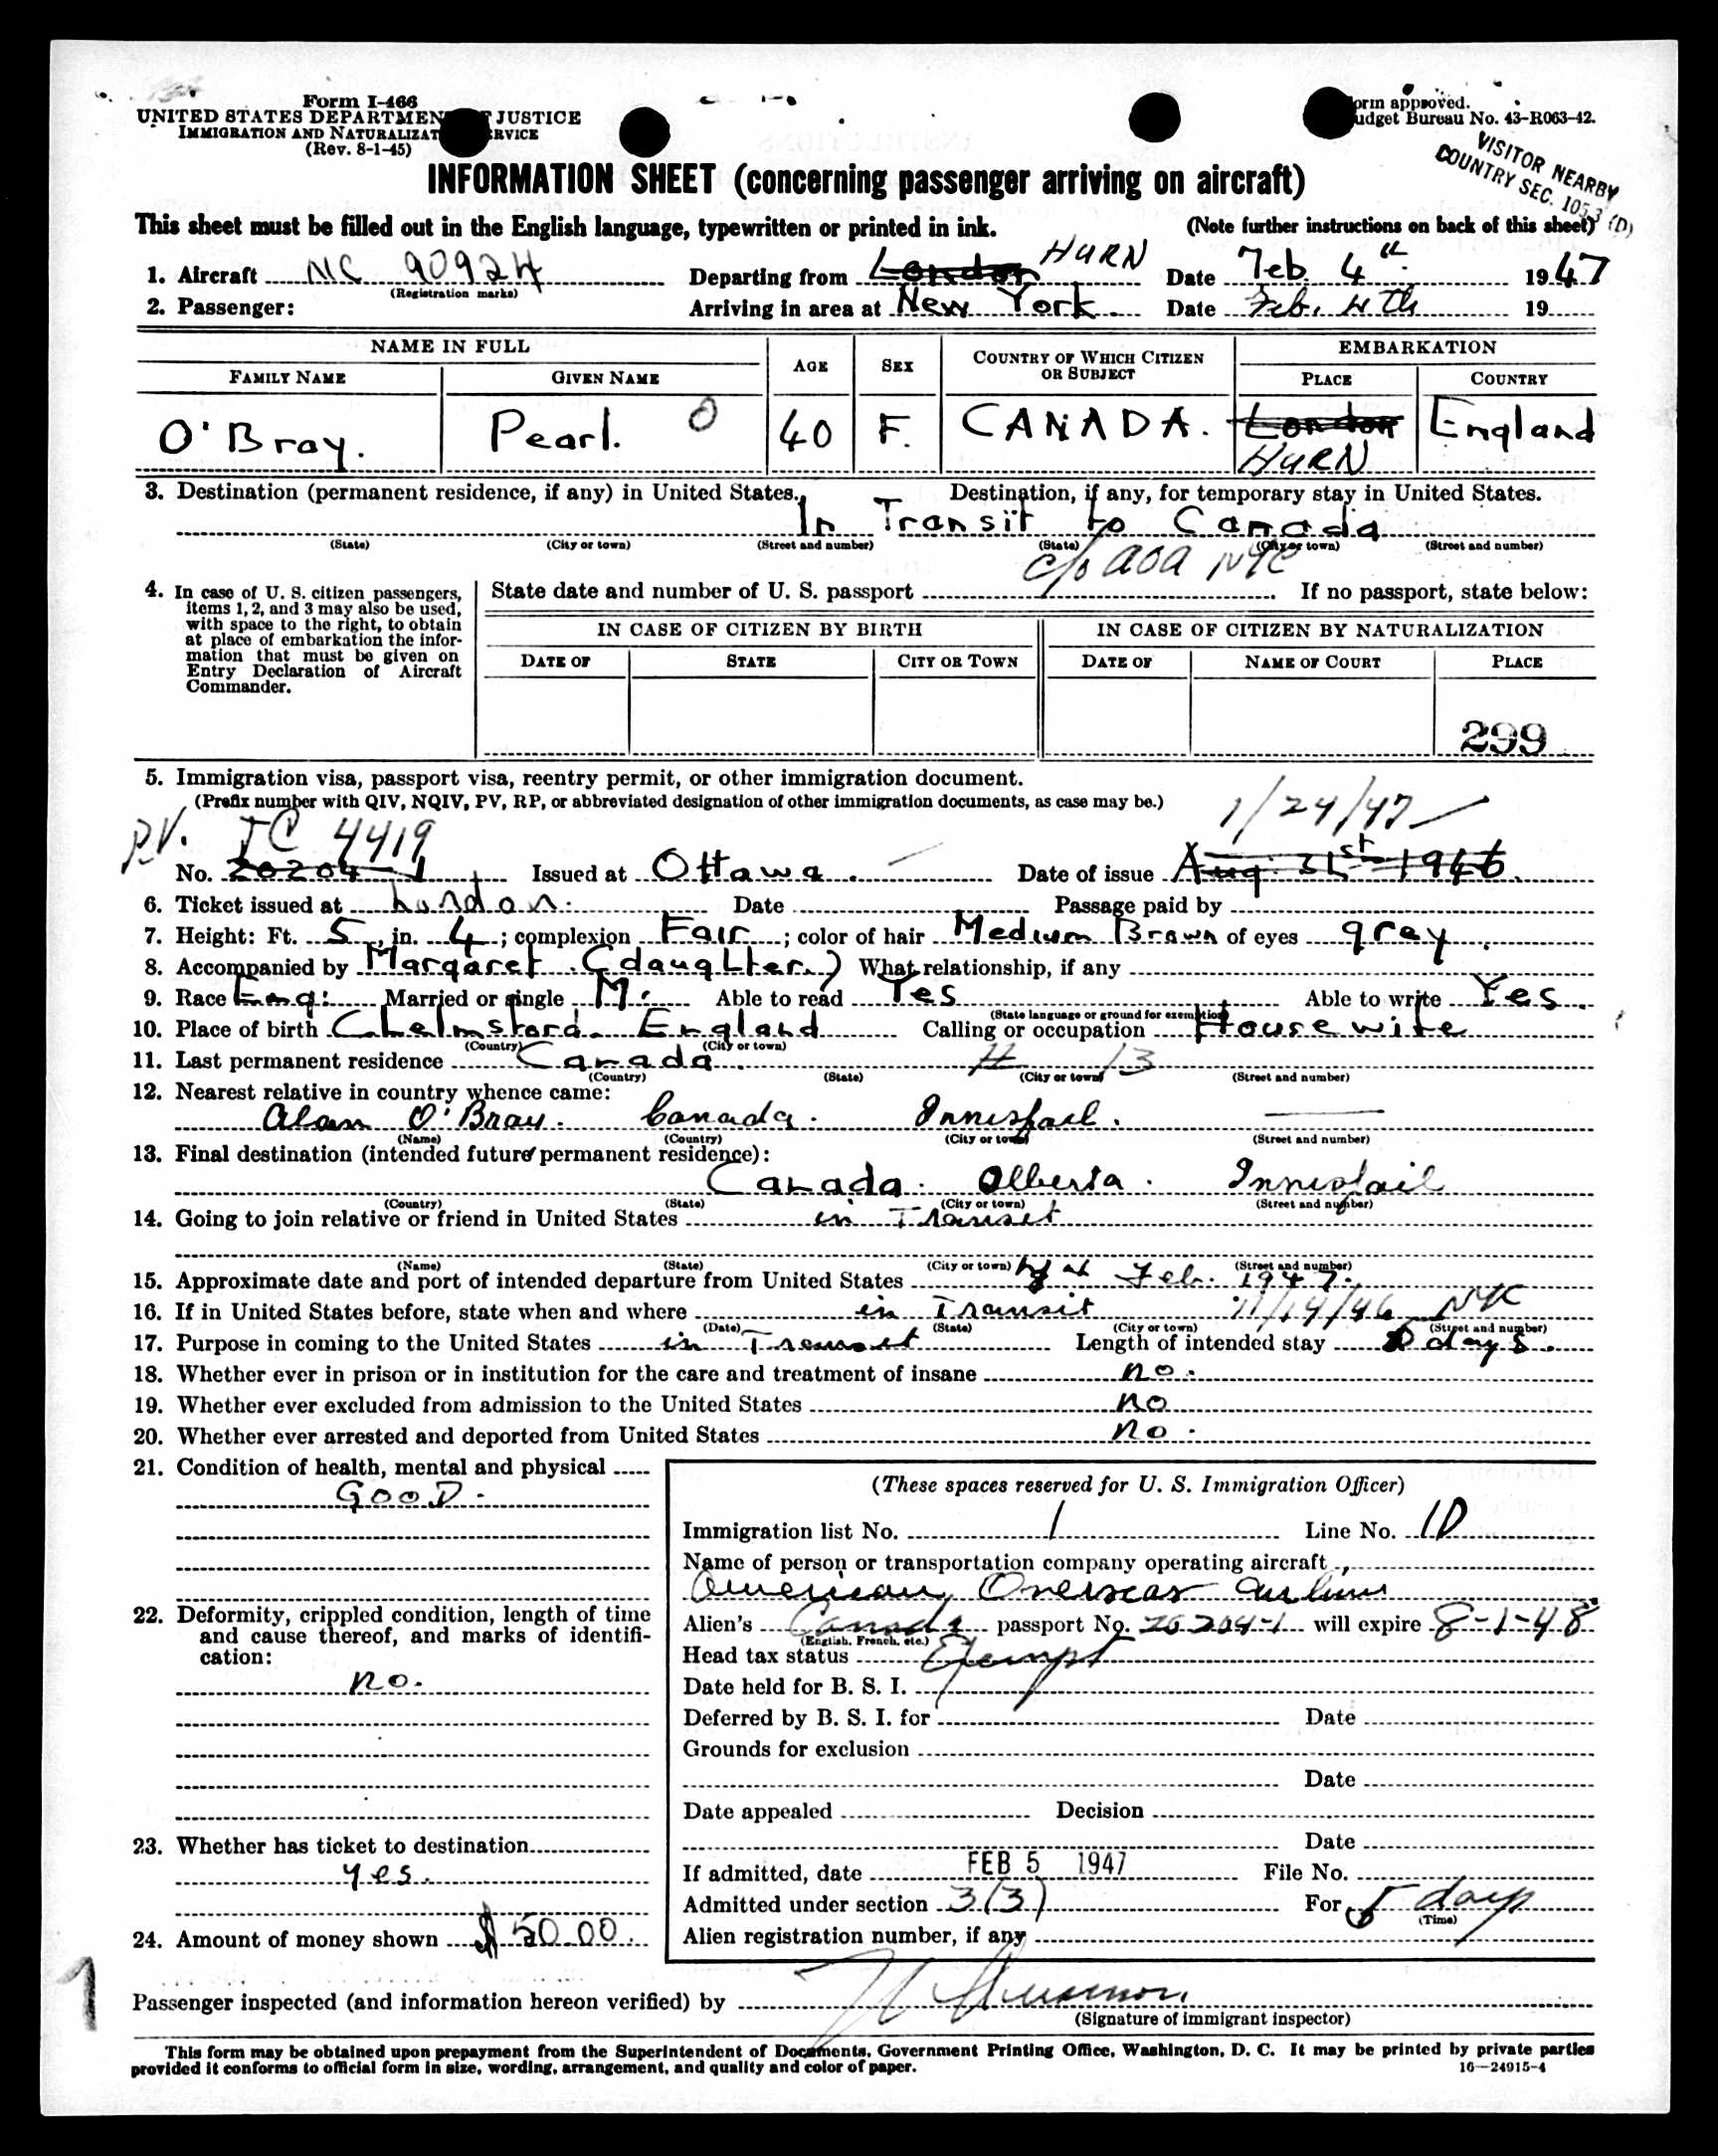 Form I-466
UNITED STATES DEPARTMENT JUSTICE
IMMIGRATION AND NATURALIZAT RVICE
(Rev. 8-1-45)
orm approved.
udget Bureau No. 43-R063-42.
VISITOR NEARBY
COUNTRY SEC. 1053 (D)
INFORMATION SHEET (concerning passenger arriving on aircraft)
This sheet must be filled out in the English language, typewritten or printed in ink. (Note further instructions on back of this sheet)
1. Aircraft NC 90924 Departing from London HURN Date Feb. 4th 1947
(Registration marks)
2. Passenger: Arriving in area at New York. Date Feb. 4th 19
NAME IN FULL AGE SEX COUNTRY OF WHICH CITIZEN OR SUBJECT EMBARKATION
FAMILY NAME GIVEN NAME PLACE COUNTRY
O'Bray. Pearl. O 40 F. CANADA. London England
HURN
3. Destination (permanent residence, if any) in United States. Destination, if any, for temporary stay in United States.
In Transit to Canada
(State) (City or town) (Street and number) (State) (City or town) (Street and number)
c/o AOA NYC
4. In case of U. S. citizen passengers, items 1, 2, and 3 may also be used, with space to the right, to obtain at place of embarkation the information that must be given on Entry Declaration of Aircraft Commander.
State date and number of U. S. passport If no passport, state below:
IN CASE OF CITIZEN BY BIRTH IN CASE OF CITIZEN BY NATURALIZATION
DATE OF STATE CITY OR TOWN DATE OF NAME OF COURT PLACE
299
5. Immigration visa, passport visa, reentry permit, or other immigration document.
(Prefix number with QIV, NQIV, PV, RP, or abbreviated designation of other immigration documents, as case may be.)
P.V. TC 4419 1/24/47
No. 20204-1 Issued at Ottawa. Date of issue Aug. 31st 1946.
6. Ticket issued at London. Date Passage paid by
7. Height: Ft. 5 in. 4; complexion Fair; color of hair Medium Brown of eyes gray.
8. Accompanied by Margaret (daughter.) What relationship, if any
9. Race Eng: Married or single M. Able to read Yes Able to write Yes.
(State language or ground for exemption)
10. Place of birth Chelmsford. England Calling or occupation Housewife
(Country) (City or town)
11. Last permanent residence Canada. H 13
(Country) (State) (City or town) (Street and number)
12. Nearest relative in country whence came:
Alan O'Bray. Canada. Innisfail.
(Name) (Country) (City or town) (Street and number)
13. Final destination (intended future permanent residence):
Canada. Alberta. Innisfail
(Country) (State) (City or town) (Street and number)
14. Going to join relative or friend in United States in Transit
(Name) (State) (City or town) (Street and number)
15. Approximate date and port of intended departure from United States Feb. 1947.
16. If in United States before, state when and where in Transit 11/14/46 NYC
(Date) (State) (City or town) (Street and number)
17. Purpose in coming to the United States in Transit Length of intended stay days.
18. Whether ever in prison or in institution for the care and treatment of insane no.
19. Whether ever excluded from admission to the United States no
20. Whether ever arrested and deported from United States no.
21. Condition of health, mental and physical
GOOD.
22. Deformity, crippled condition, length of time and cause thereof, and marks of identification:
no.
23. Whether has ticket to destination
yes.
24. Amount of money shown $50.00.
(These spaces reserved for U. S. Immigration Officer)
Immigration list No. 1 Line No. 10
Name of person or transportation company operating aircraft
American Overseas Airlines
Alien's Canada passport No. 20204-1 will expire 8-1-48
(English, French, etc.)
Head tax status Exempt
Date held for B. S. I.
Deferred by B. S. I. for Date
Grounds for exclusion
Date
Date appealed Decision
Date
If admitted, date FEB 5 1947 File No.
Admitted under section 3(3) For 5 days
(Time)
Alien registration number, if any
1
Passenger inspected (and information hereon verified) by
(Signature of immigrant inspector)
This form may be obtained upon prepayment from the Superintendent of Documents, Government Printing Office, Washington, D. C. It may be printed by private parties
provided it conforms to official form in size, wording, arrangement, and quality and color of paper. 16—24915-4